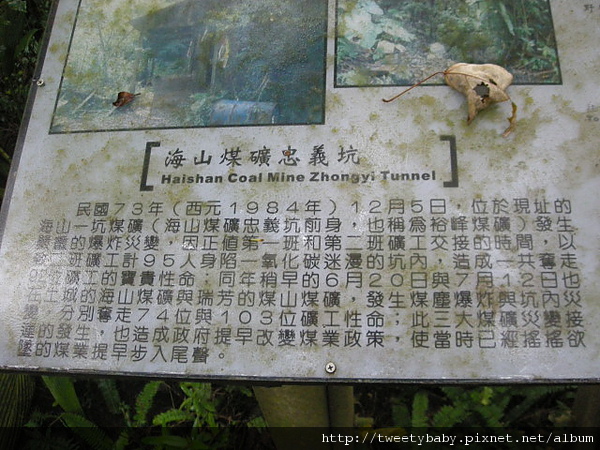 海山煤礦忠義坑
Haishan Coal Mine Zhongyi Tunnel
民國73年（西元1984年）12月5日，位於現址的
海山一坑煤礦（海山煤礦忠義坑前身，也稱為裕峰煤礦）發生
嚴重的爆炸災變，因正值第一班和第二班礦工交接的時間，以
致二班礦工計95人身陷一氧化碳迷漫的坑內，造成一共奪走
位礦工的寶貴性命，同年稍早的6月20日與7月12日也
在土城的海山煤礦與瑞芳的煤山煤礦，發生煤塵爆炸與坑內災
變，分別奪走74位與103位礦工性命；此三大煤礦災變接
連的發生，也造成政府提早改變煤業政策，使當時已經搖搖欲
墜的煤業提早步入尾聲。
http://tweetybaby.pixnet.net/album